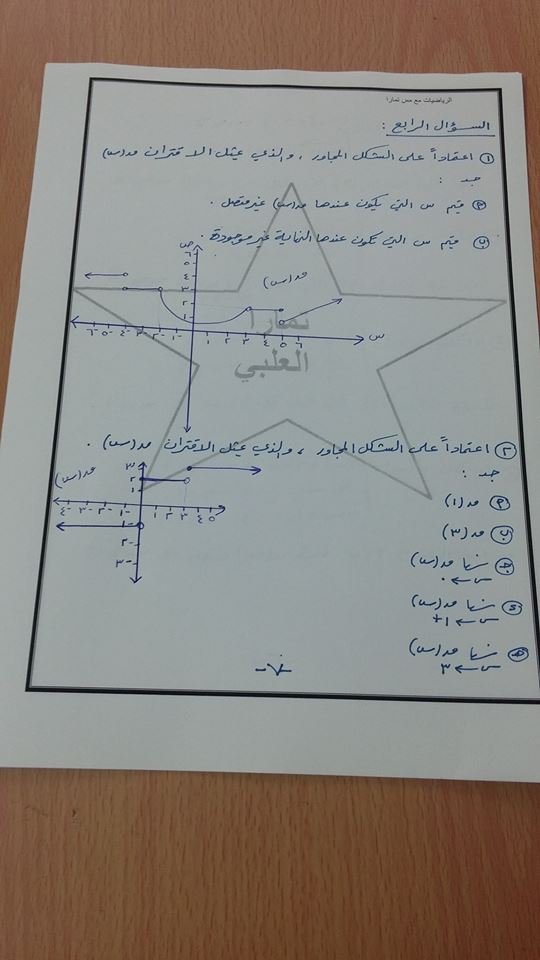 الرياضيات مع مس تمارا
السؤال الرابع :
١ اعتماداً على الشكل المجاور ، والذي يمثل الاقتران ق(س)
جد :
أ قيم س التي يكون عندها ق(س) غير متصل .
ب قيم س التي تكون عندها النهاية غير موجودة .
ص
٦
٥
٤
٣
٢
١
ق(س)
س
٦- ٥- ٤- ٣- ٢- ١- ١ ٢ ٣ ٤ ٥ ٦
تمارا
العلبي
٢ اعتماداً على الشكل المجاور ، والذي يمثل الاقتران ق(س) .
جد :
ق(س)
٣
٢
١
٤- ٣- ٢- ١- ١ ٢ ٣ ٤ ٥
١-
٢-
٣-
أ ق(١)
ب ق(٣)
ج نهــا ق(س)
س ← ٠
د نهــا ق(س)
س ← ١+
هـ نهــا ق(س)
س ← ٣
-٧-